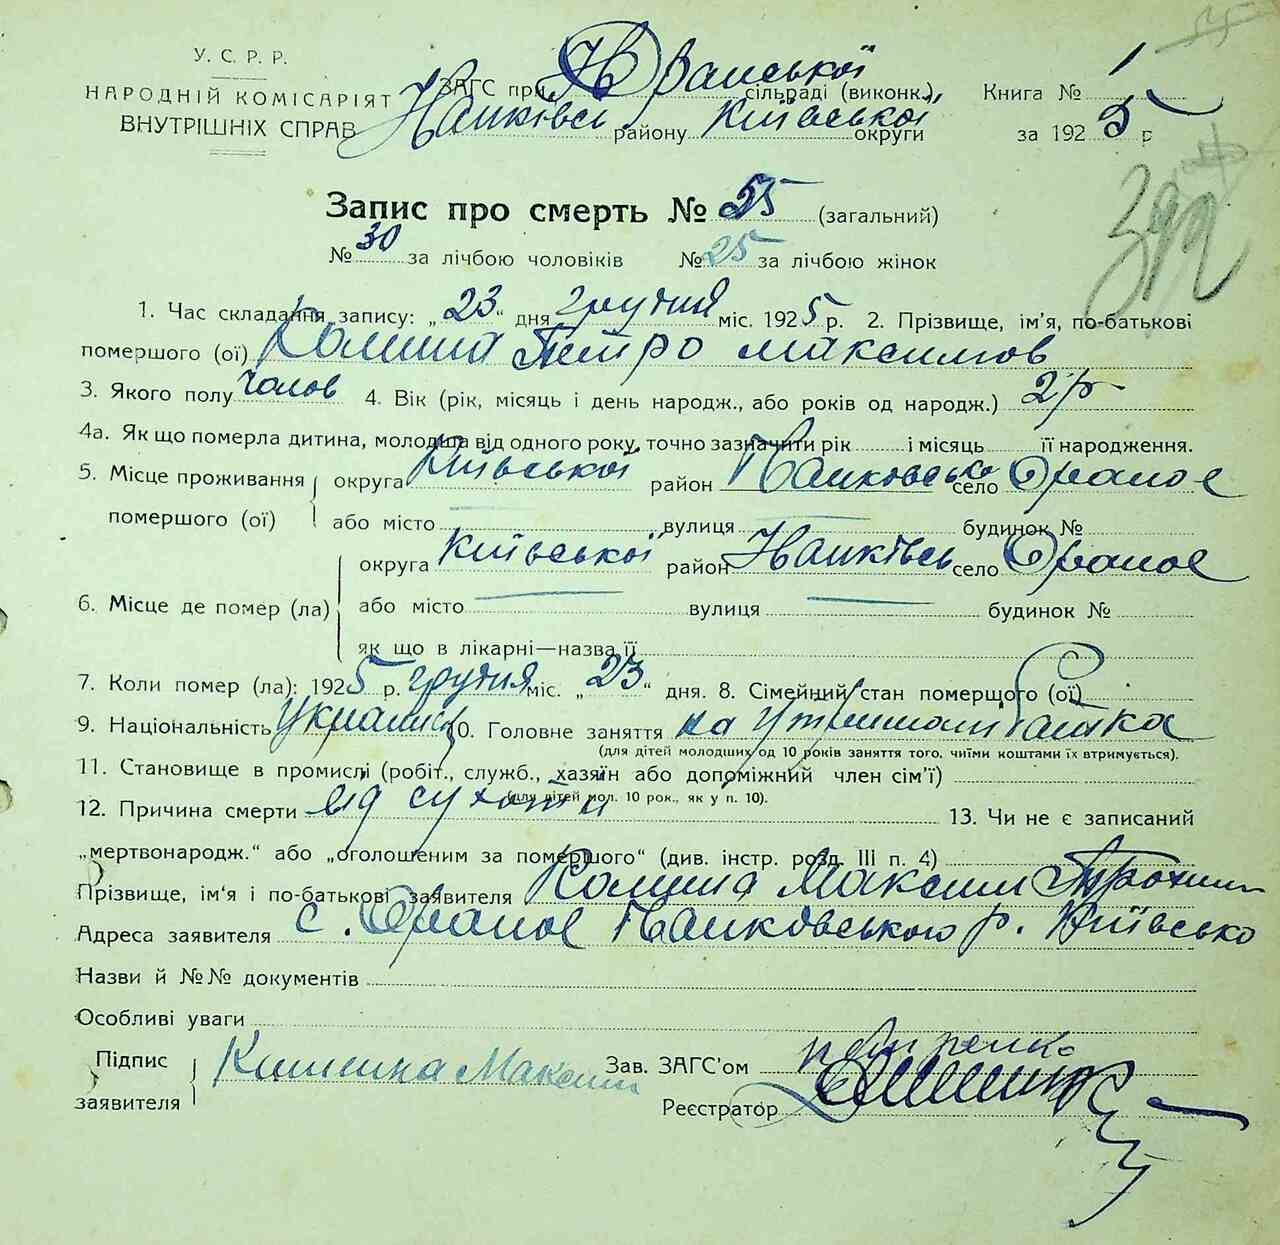 У. С. Р. Р.
НАРОДНІЙ КОМІСАРІЯТ
ВНУТРІШНІХ СПРАВ
ЗАГС при Оранської сільраді (виконк.) Книга № 1
району Київської округи за 1925 р
392
Запис про смерть № 55 (загальний)
№ 30 за лічбою чоловіків № 25 за лічбою жінок
1. Час складання запису: „23“ дня грудня міс. 1925 р. 2. Прізвище, ім’я, по-батькові
помершого (ої) Петро Максимов
3. Якого полу чолов 4. Вік (рік, місяць і день народж., або років од народж.) 2 р
4а. Як що померла дитина, молодша від одного року, точно зазначити рік і місяць її народження.
5. Місце проживання округа Київської район село Ораное
помершого (ої) або місто вулиця будинок №
округа Київської район село Ораное
6. Місце де помер (ла) або місто вулиця будинок №
як що в лікарні—назва її
7. Коли помер (ла): 1925 р. грудня міс. „23“ дня. 8. Сімейний стан померщого (ої)
9. Національність 10. Головне заняття на утриман батька
(для дітей молодших од 10 років заняття того, чиїми коштами їх втримується).
11. Становище в промислі (робіт., служб., хазяїн або допоміжний член сім’ї)
(для дітей мол. 10 рок., як у п. 10).
12. Причина смерти від сухоти 13. Чи не є записаний
„мертвонародж.“ або „оголошеним за помершого“ (див. інстр. розд. III п. 4)
Прізвище, ім‘я і по-батькові заявителя Максим
Адреса заявителя с. Ораное р. Київсько
Назви й №№ документів
Особливі уваги
Підпис Максим Зав. ЗАГС’ом
заявителя Реєстратор